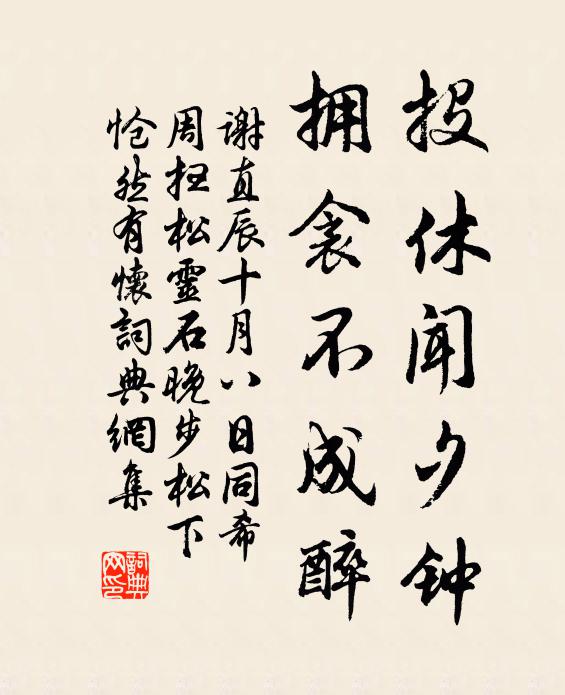 投休闻夕钟
拥衾不成醉
谢直辰十月八日同希
周扫松靈石晚步松下
怆然有懷詞典網集
詞典网印